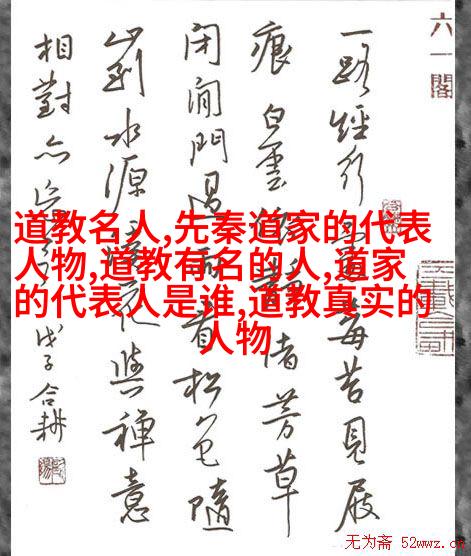 六一閣
一路經行處莓苔見屐
痕白雲依靜渚芳草
閉閒門過雨看松色隨
山到水源溪花與禪意
相對亦忘言 戊子 合耕
道教名人,先秦道家的代表
人物,道教有名的人,道家
的代表人是谁,道教真实的
人物
无为斋 52wwz.c